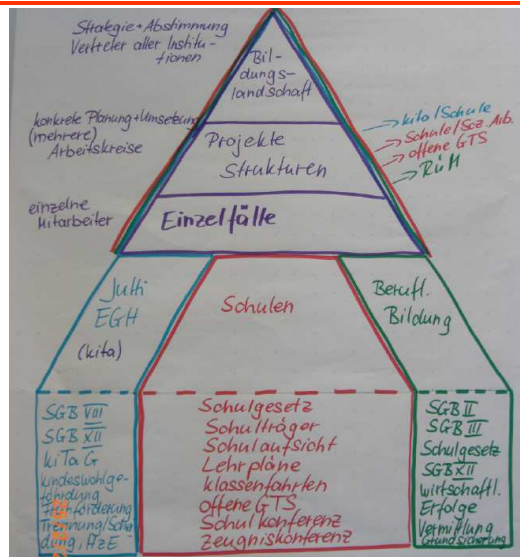 Strategie + Abstimmung
Vertreter aller Institu-
tionen
Bil-
dungs-
landschaft
konkrete Planung + Umsetzung
(mehrere)
Arbeitskreise
Projekte
Strukturen
→ Kita/Schule
→ Schule/Soz. Arb.
→ offene GTS
→ RüM
einzelne
Mitarbeiter
Einzelfälle
JuHi
EGH
(Kita)
Schulen
Berufl.
Bildung
SGB VIII
SGB XII
KiTaG
Kindeswohlge-
fährdung
Trennung/Schei
dung, HzE
Schulgesetz
Schulträger
Schulaufsicht
Lehrpläne
Klassenfahrten
offene GTS
Schulkonferenz
Zeugniskonferenz
SGB II
SGB III
Schulgesetz
SGB XII
wirtschaftl.
Erfolge
Vermittlung
Grundsicherung